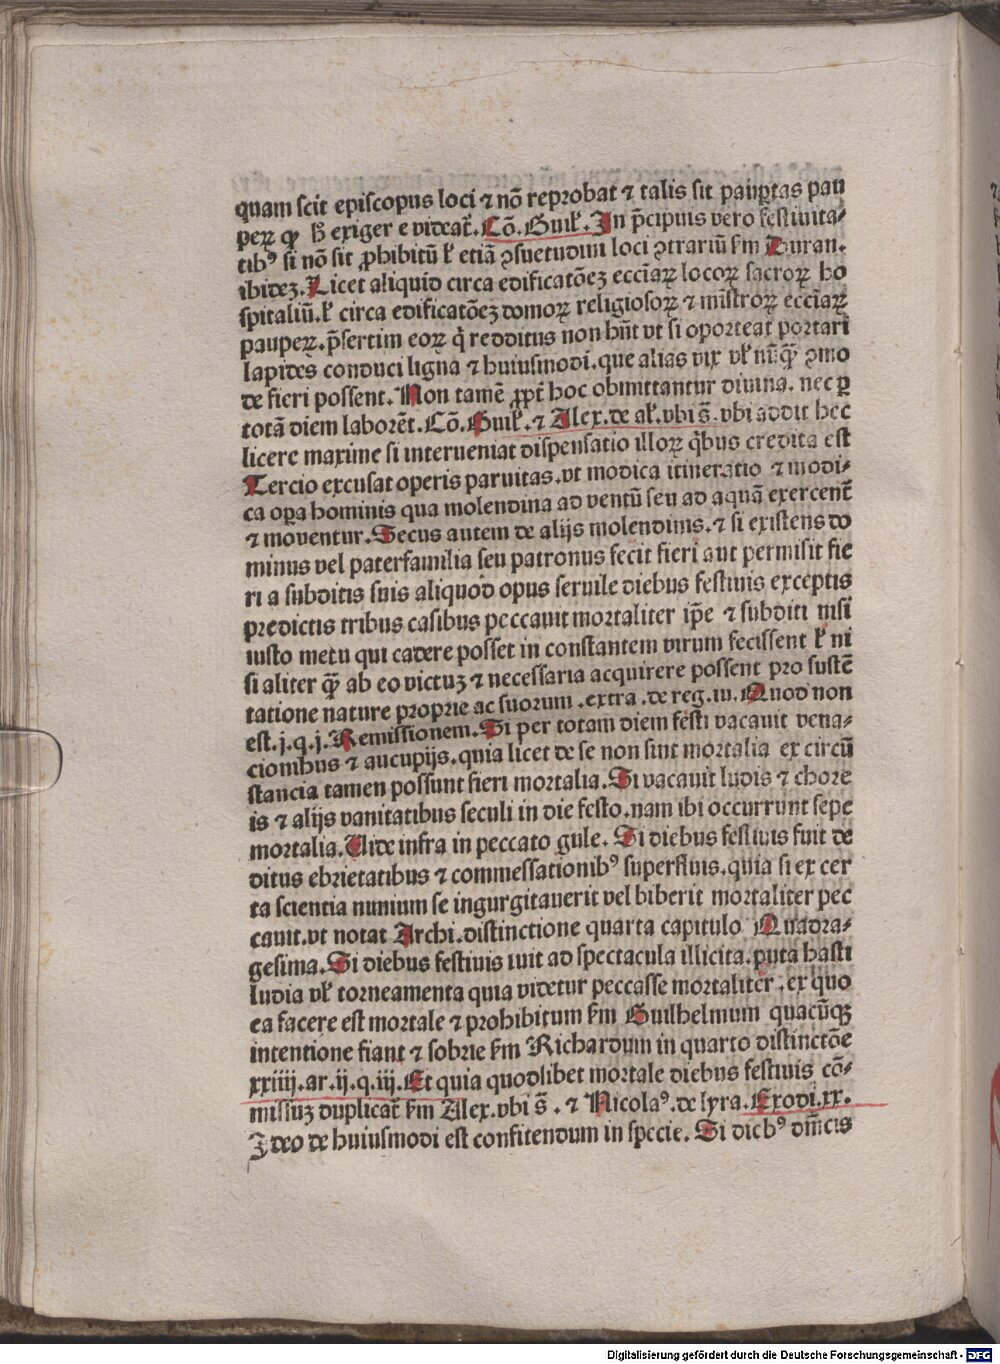 quam scit episcopus loci ⁊ nō reprobat ⁊ talis sit paupertas pau
perꝝ ꝙ hoc exigere videat̄. Cō. Guil̄. In p̄cipuis vero festiuita⸗
tibꝰ si nō sit ꝓhibitū vl̄ etiā ꝯsuetudini loci ꝯtrariū ẜm Duran.
ibidez. Licet aliquid circa edificatōez eccĩaꝝ locoꝝ sacroꝝ ho
spitaliū. vl̄ circa edificatōez domoꝝ religiosoꝝ ⁊ mĩstroꝝ eccĩaꝝ
paupeꝝ. p̄sertim eoꝝ q̇ redditus non hn̄t vt si oporteat portari
lapides conduci ligna ⁊ huiusmodi. que alias vix vl̄ nūꝙ̄ ꝯmo
de fieri possent. Non tamē ꝓpt̄ hoc obmittantur diuina. nec ꝑ
totā diem laborēt. Cō. Guil̄. ⁊ Alex. de al̄. vbi s̄. vbi addit hec
licere maxime si interueniat dispensatio illoꝝ q̇bus credita est
Tercio excusat operis paruitas. vt modica itineratio ⁊ modi⸗
ca oꝑa hominis qua molendina ad ventū seu ad aquā exercent̄
⁊ mouentur. Secus autem de alijs molendinis. ⁊ si existens do
minus vel paterfamilia seu patronus fecit fieri aut permisit fie
ri a subditis suis aliquod opus seruile diebus festiuis exceptis
predictis tribus casibus peccauit mortaliter ip̄e ⁊ subditi nisi
iusto metu qui cadere posset in constantem virum fecissent vl̄ ni
si aliter ꝙ̄ ab eo victuz ⁊ necessaria acquirere possent pro sustē
tatione nature proprie ac suorum. extra. de reg. iu. Quod non
est. j. q. j. Remissionem. Si per totam diem festi vacauit vena⸗
cionibus ⁊ aucupijs. quia licet de se non sint mortalia ex circū
stancia tamen possunt fieri mortalia. Si vacauit ludis ⁊ chore
is ⁊ alijs vanitatibus seculi in die festo. nam ibi occurrunt sepe
mortalia. Vide infra in peccato gule. Si diebus festiuis fuit de
ditus ebrietatibus ⁊ commessationibꝰ superfluis. quia si ex cer
ta scientia nimium se ingurgitauerit vel biberit mortaliter pec
cauit. vt notat Archi. distinctione quarta capitulo Quadra⸗
gesima. Si diebus festiuis iuit ad spectacula illicita. puta hasti
ludia vl̄ torneamenta quia videtur peccasse mortaliter. ex quo
ea facere est mortale ⁊ prohibitum ẜm Guilhelmum quacūqꝫ
intentione fiant ⁊ sobrie ẜm Richardum in quarto distinctōe
xxiiij. ar. ij. q. iij. Et quia quodlibet mortale diebus festiuis cō⸗
missuz duplicat̄ ẜm Alex. vbi s̄. ⁊ Nicolaꝰ. de lyra. Exodi. xx.
Ideo de huiusmodi est confitendum in specie. Si diebꝰ dn̄icis
Digitalisierung gefördert durch die Deutsche Forschungsgemeinschaft - DFG